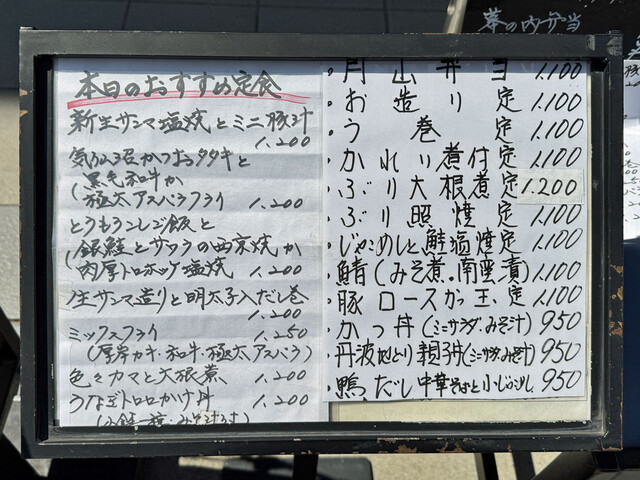 本日のおすすめ定食
新生サンマ塩焼とミニ豚汁
1.200
気仙沼かつおタタキと
(黒毛和牛か
極太アスパラフライ 1.200
とうもろこしご飯と
(銀鮭とサワラの西京焼か
肉厚トロホッケ塩焼 1.200
生サンマ造りと明太子入だし巻
1.200
ミックスフライ 1.250
(厚岸カキ・和牛・極太アスパラ)
色々カマと大根煮 1.200
うなぎトロロかけ丼 1.200
幕の内弁当
・円山弁当 1.100
・お造り定 1.100
・う巻定 1.100
・かれい煮付定 1.100
・ぶり大根煮定 1.200
・ぶり照焼定 1.100
・じゃこめしと鮭塩焼定 1.100
・鯖(みそ煮・南蛮漬) 1.100
・豚ロースカツ玉定 1.100
・かつ丼(ミニサラダ・みそ汁) 950
・丹波地どり親子丼(ミニサラダ・みそ汁) 950
・鴨だし中華そばと小じゃこめし 950